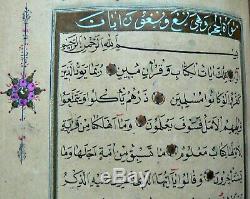 سورة الحجر وهي تسع وتسعون آيات
بسم الله الرحمن الرحيم
الر تلك آيات الكتاب وقرآن مبين ربما يود
الذين كفروا لو كانوا مسلمين ذرهم يأكلوا ويتمتعوا
ويلههم الأمل فسوف يعلمون وما أهلكنا من قرية
إلا ولها كتاب معلوم ما تسبق من أمة أجلها وما
يستأخرون وقالوا يا أيها الذي نزل عليه الذكر